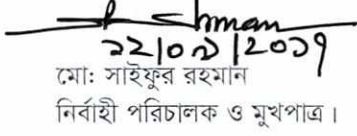 ২২/০৯/২০১৭
মো: সাইফুর রহমান
নির্বাহী পরিচালক ও মুখপাত্র।